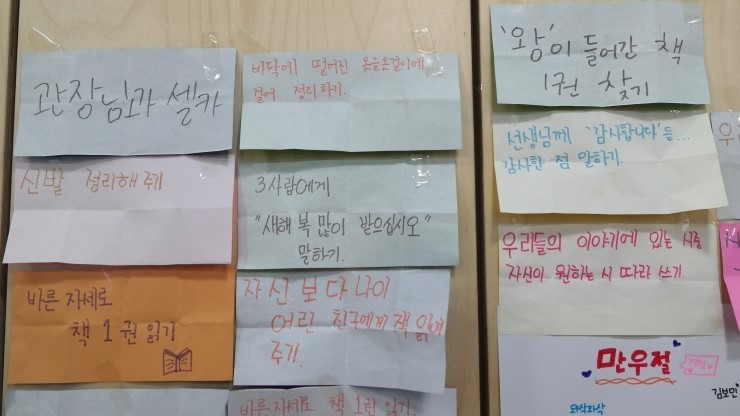 관장님과 셀카
신발 정리해 주기
바른 자세로
책 1권 읽기
바닥에 떨어진 옷을 옷걸이에
걸어 정리하기.
3사람에게
"새해 복 많이 받으십시오"
말하기.
자신보다 나이
어린 친구에게 책 읽어
주기.
바른 자세로 책 1권 읽기.
'왕'이 들어간 책
1권 찾기
선생님께 '감사합니다' 등...
감사한 점 말하기.
우리들의 이야기에 있는 시중
자신이 원하는 시 따라 쓰기
만우절
김보민
와삭와삭
우